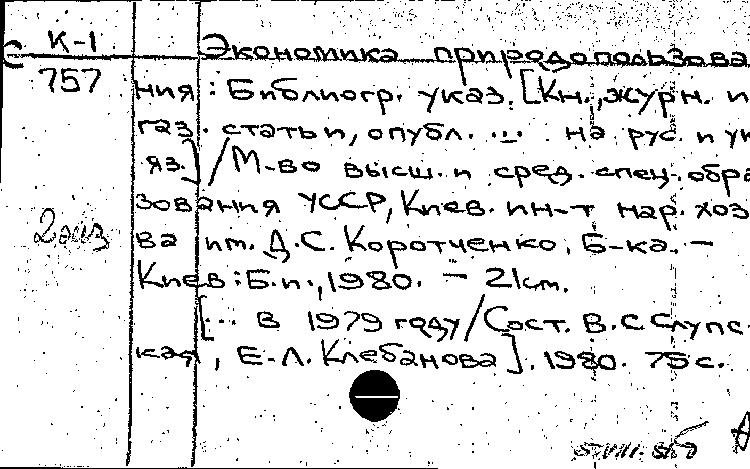 К-1
757
Экономика природопользова
ния : Библиогр. указ. [Кн., журн. и
газ. статьи, опубл. ... на рус. и ук
яз.] / М-во высш. и сред. спец. обра
зования УССР, Киев. ин-т нар. хоз
ва им. Д.С. Коротченко, Б-ка. –
Киев : Б.и., 1980. – 21см.
[... в 1979 году / Сост. В.С. Слупс
кая, Е.Л. Клебанова]. 1980. 75 с.
2 экз